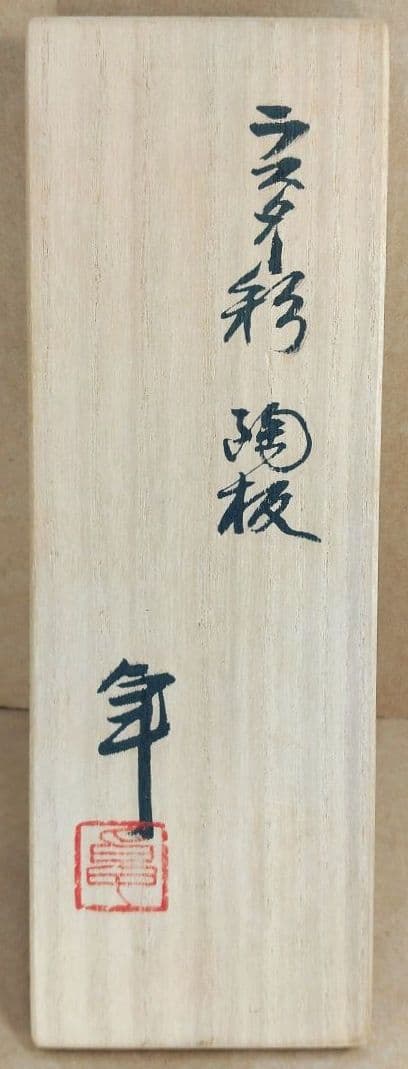 ラスター彩 陶板